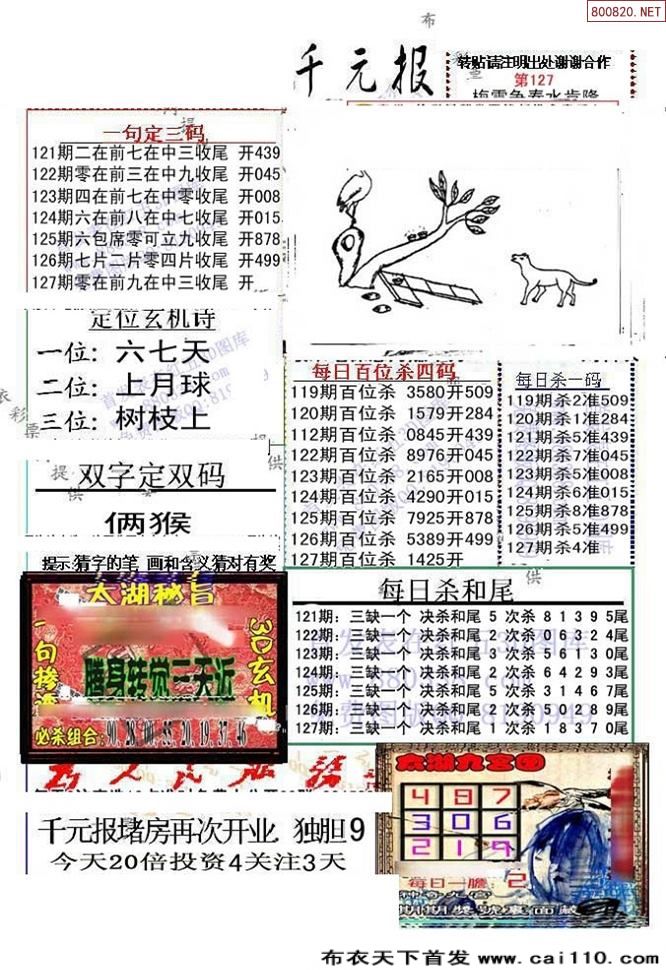 800820.NET
布
千元报
转贴请注明出处谢谢合作
第127
一句定三码
121期二在前七在中三收尾 开439
122期零在前三在中九收尾 开045
123期四在前七在中零收尾 开008
124期六在前八在中七收尾 开015
125期六包席零可立九收尾 开878
126期七片二片零四片收尾 开499
127期零在前九在中三收尾 开
定位玄机诗
一位: 六七天
二位: 上月球
三位: 树枝上
双字定双码
俩猴
提示:猜字的笔 画和含义猜对有奖
每日百位杀四码
119期百位杀 3580开509
120期百位杀 1579开284
112期百位杀 0845开439
122期百位杀 8976开045
123期百位杀 2165开008
124期百位杀 4290开015
125期百位杀 7925开878
126期百位杀 5389开499
127期百位杀 1425开
每日杀一码
119期杀2准509
120期杀1准284
121期杀5准439
122期杀7准045
123期杀5准008
124期杀6准015
125期杀8准878
126期杀5准499
127期杀4准
每日杀和尾
121期: 三缺一个 决杀和尾 5 次杀 8 1 3 9 5尾
122期: 三缺一个 决杀和尾 7 次杀 0 6 3 2 4尾
123期: 三缺一个 决杀和尾 3 次杀 5 6 1 3 0尾
124期: 三缺一个 决杀和尾 2 次杀 6 4 2 9 3尾
125期: 三缺一个 决杀和尾 5 次杀 3 1 4 6 7尾
126期: 三缺一个 决杀和尾 2 次杀 5 0 2 8 9尾
127期: 三缺一个 决杀和尾 1 次杀 1 8 3 7 0尾
太湖秘旨
3D玄机
腾身转觉三天近
必杀组合: 90, 28, 00, 55, 20, 19, 37, 46
千元报堵房再次开业. 独胆9
今天20倍投资4关注3天
太湖九宫图
4 8 7
3 0 6
2 1 9
每日一胆: 2
布衣天下首发 www.cai110.com